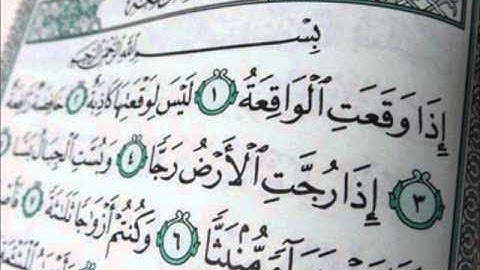 بِسْمِ اللَّهِ الرَّحْمَٰنِ الرَّحِيمِ
إِذَا وَقَعَتِ ٱلْوَاقِعَةُ ١ لَيْسَ لِوَقْعَتِهَا كَاذِبَةٌ ٢ خَافِضَةٌ رَّافِعَةٌ
٣ إِذَا رُجَّتِ ٱلْأَرْضُ رَجًّا ٤ وَبُسَّتِ ٱلْجِبَالُ بَسًّا
مُّنۢبَثًّا ٦ وَكُنتُمْ أَزْوَٰجًا ثَلَٰثَةً ٧